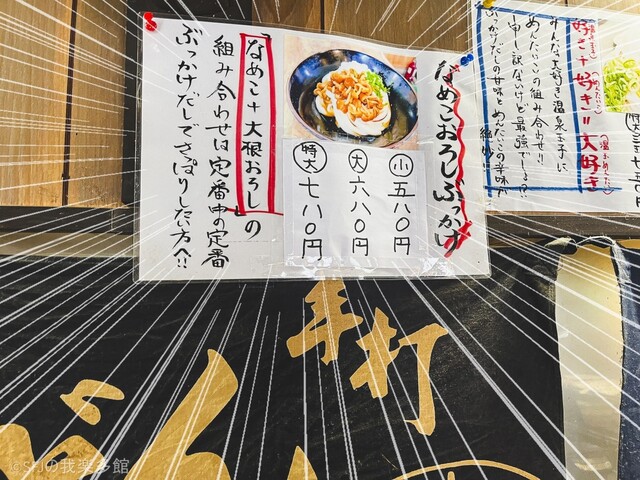 なめこおろしぶっかけ
小 五八〇円
大 六八〇円
特大 七八〇円
なめこ+大根おろしの
組み合わせは定番中の定番
ぶっかけだしでさっぱりしたい方へ!!
好き+好き=大好き
みんな大好き温泉玉子に
めんたいこの組み合わせ!!
申し訳ないけど最強でしょ!?
ぶっかけだしの甘味とめんたいこの辛味が
手打
の我楽多館